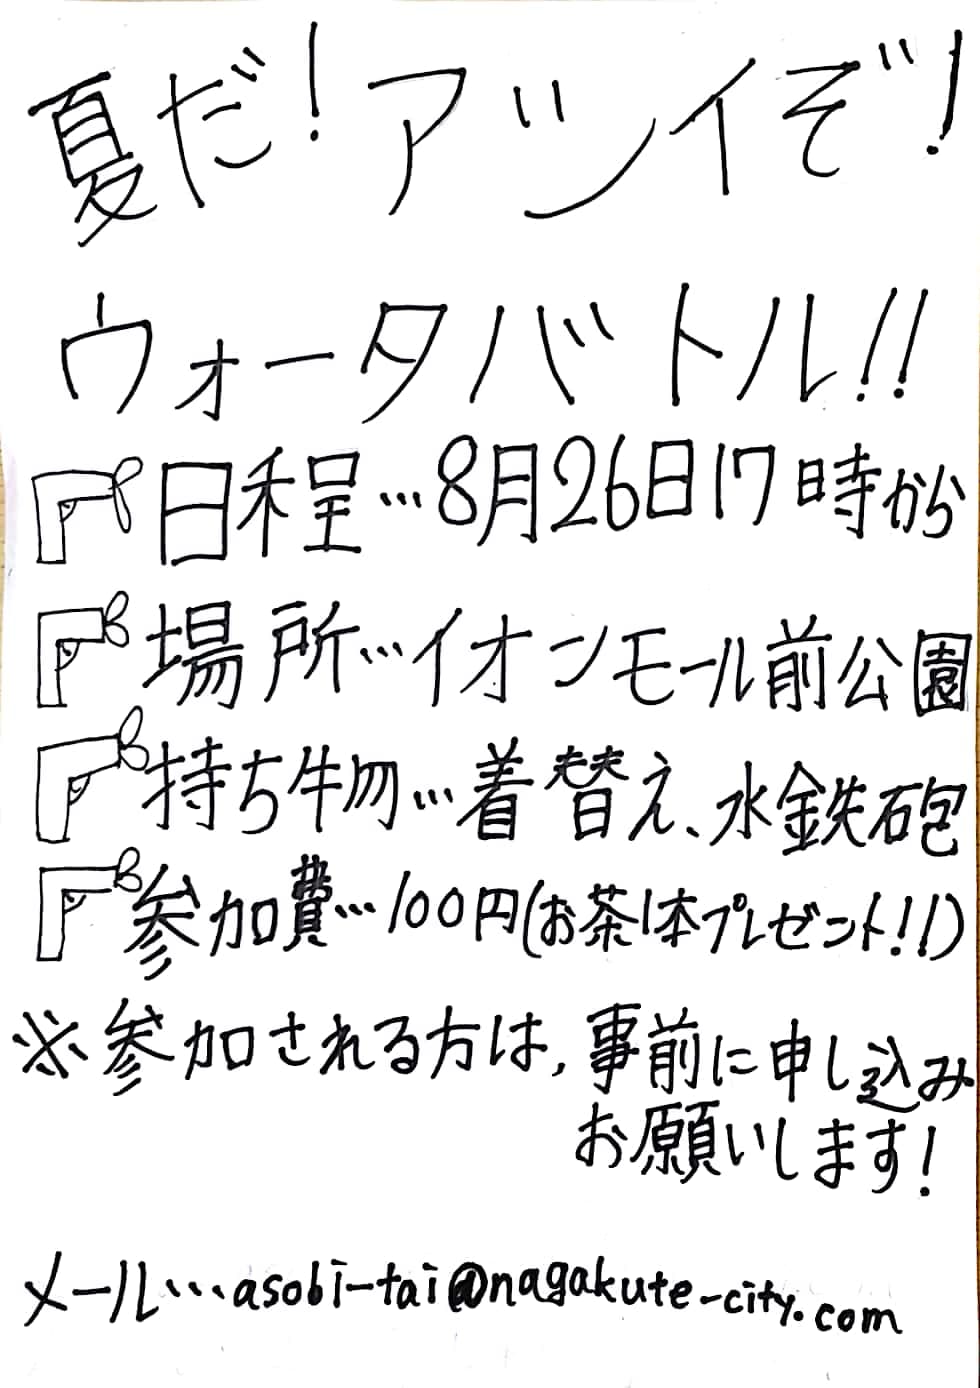 夏だ！アツイぞ！
ウォータバトル！！
日程…8月26日17時から
場所…イオンモール前公園
持ち物…着替え、水鉄砲
参加費…100円(お茶1本プレゼント！！)
※参加される方は，事前に申し込み
お願いします！
メール…asobi-tai@nagakute-city.com